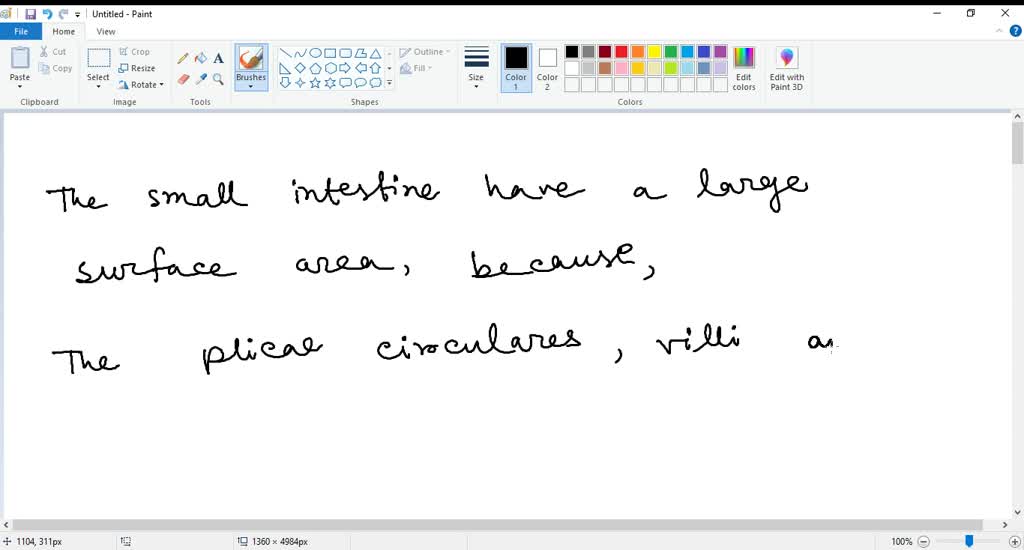 Untitled - Paint
File Home View
Paste Cut Copy Select Crop Resize Rotate Brushes Outline Fill Size Color 1 Color 2 Edit colors Edit with Paint 3D
Clipboard Image Tools Shapes Colors
The small intestine have a large
surface area, because,
The plicae circulares, villi an
1104, 311px 1360 × 4984px 100%